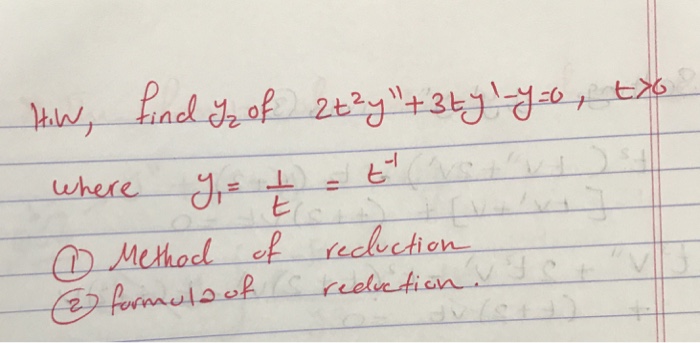 H.W, find y₂ of 2t²y"+3ty'-y=0, t>0
where y₁= 1/t = t⁻¹
① Method of reduction
② formula of reduction.